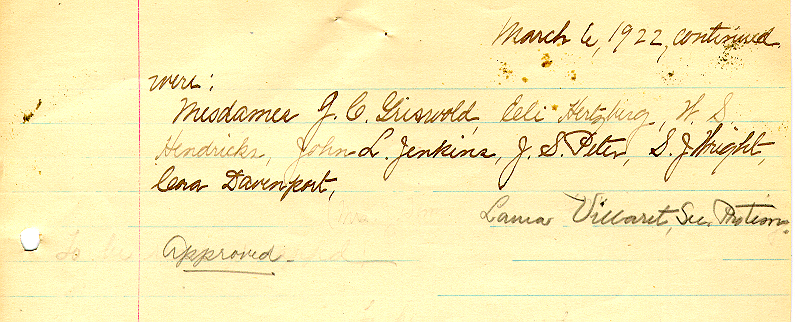 March 6, 1922, continued
were:
Mesdames J. C. Griswold, Eli Hertzberg, W. S.
Hendricks, John L. Jenkins, J. S. Peter, S. J. Wright,
Cora Davenport,
Villaret, Sec. Protem.
Approved